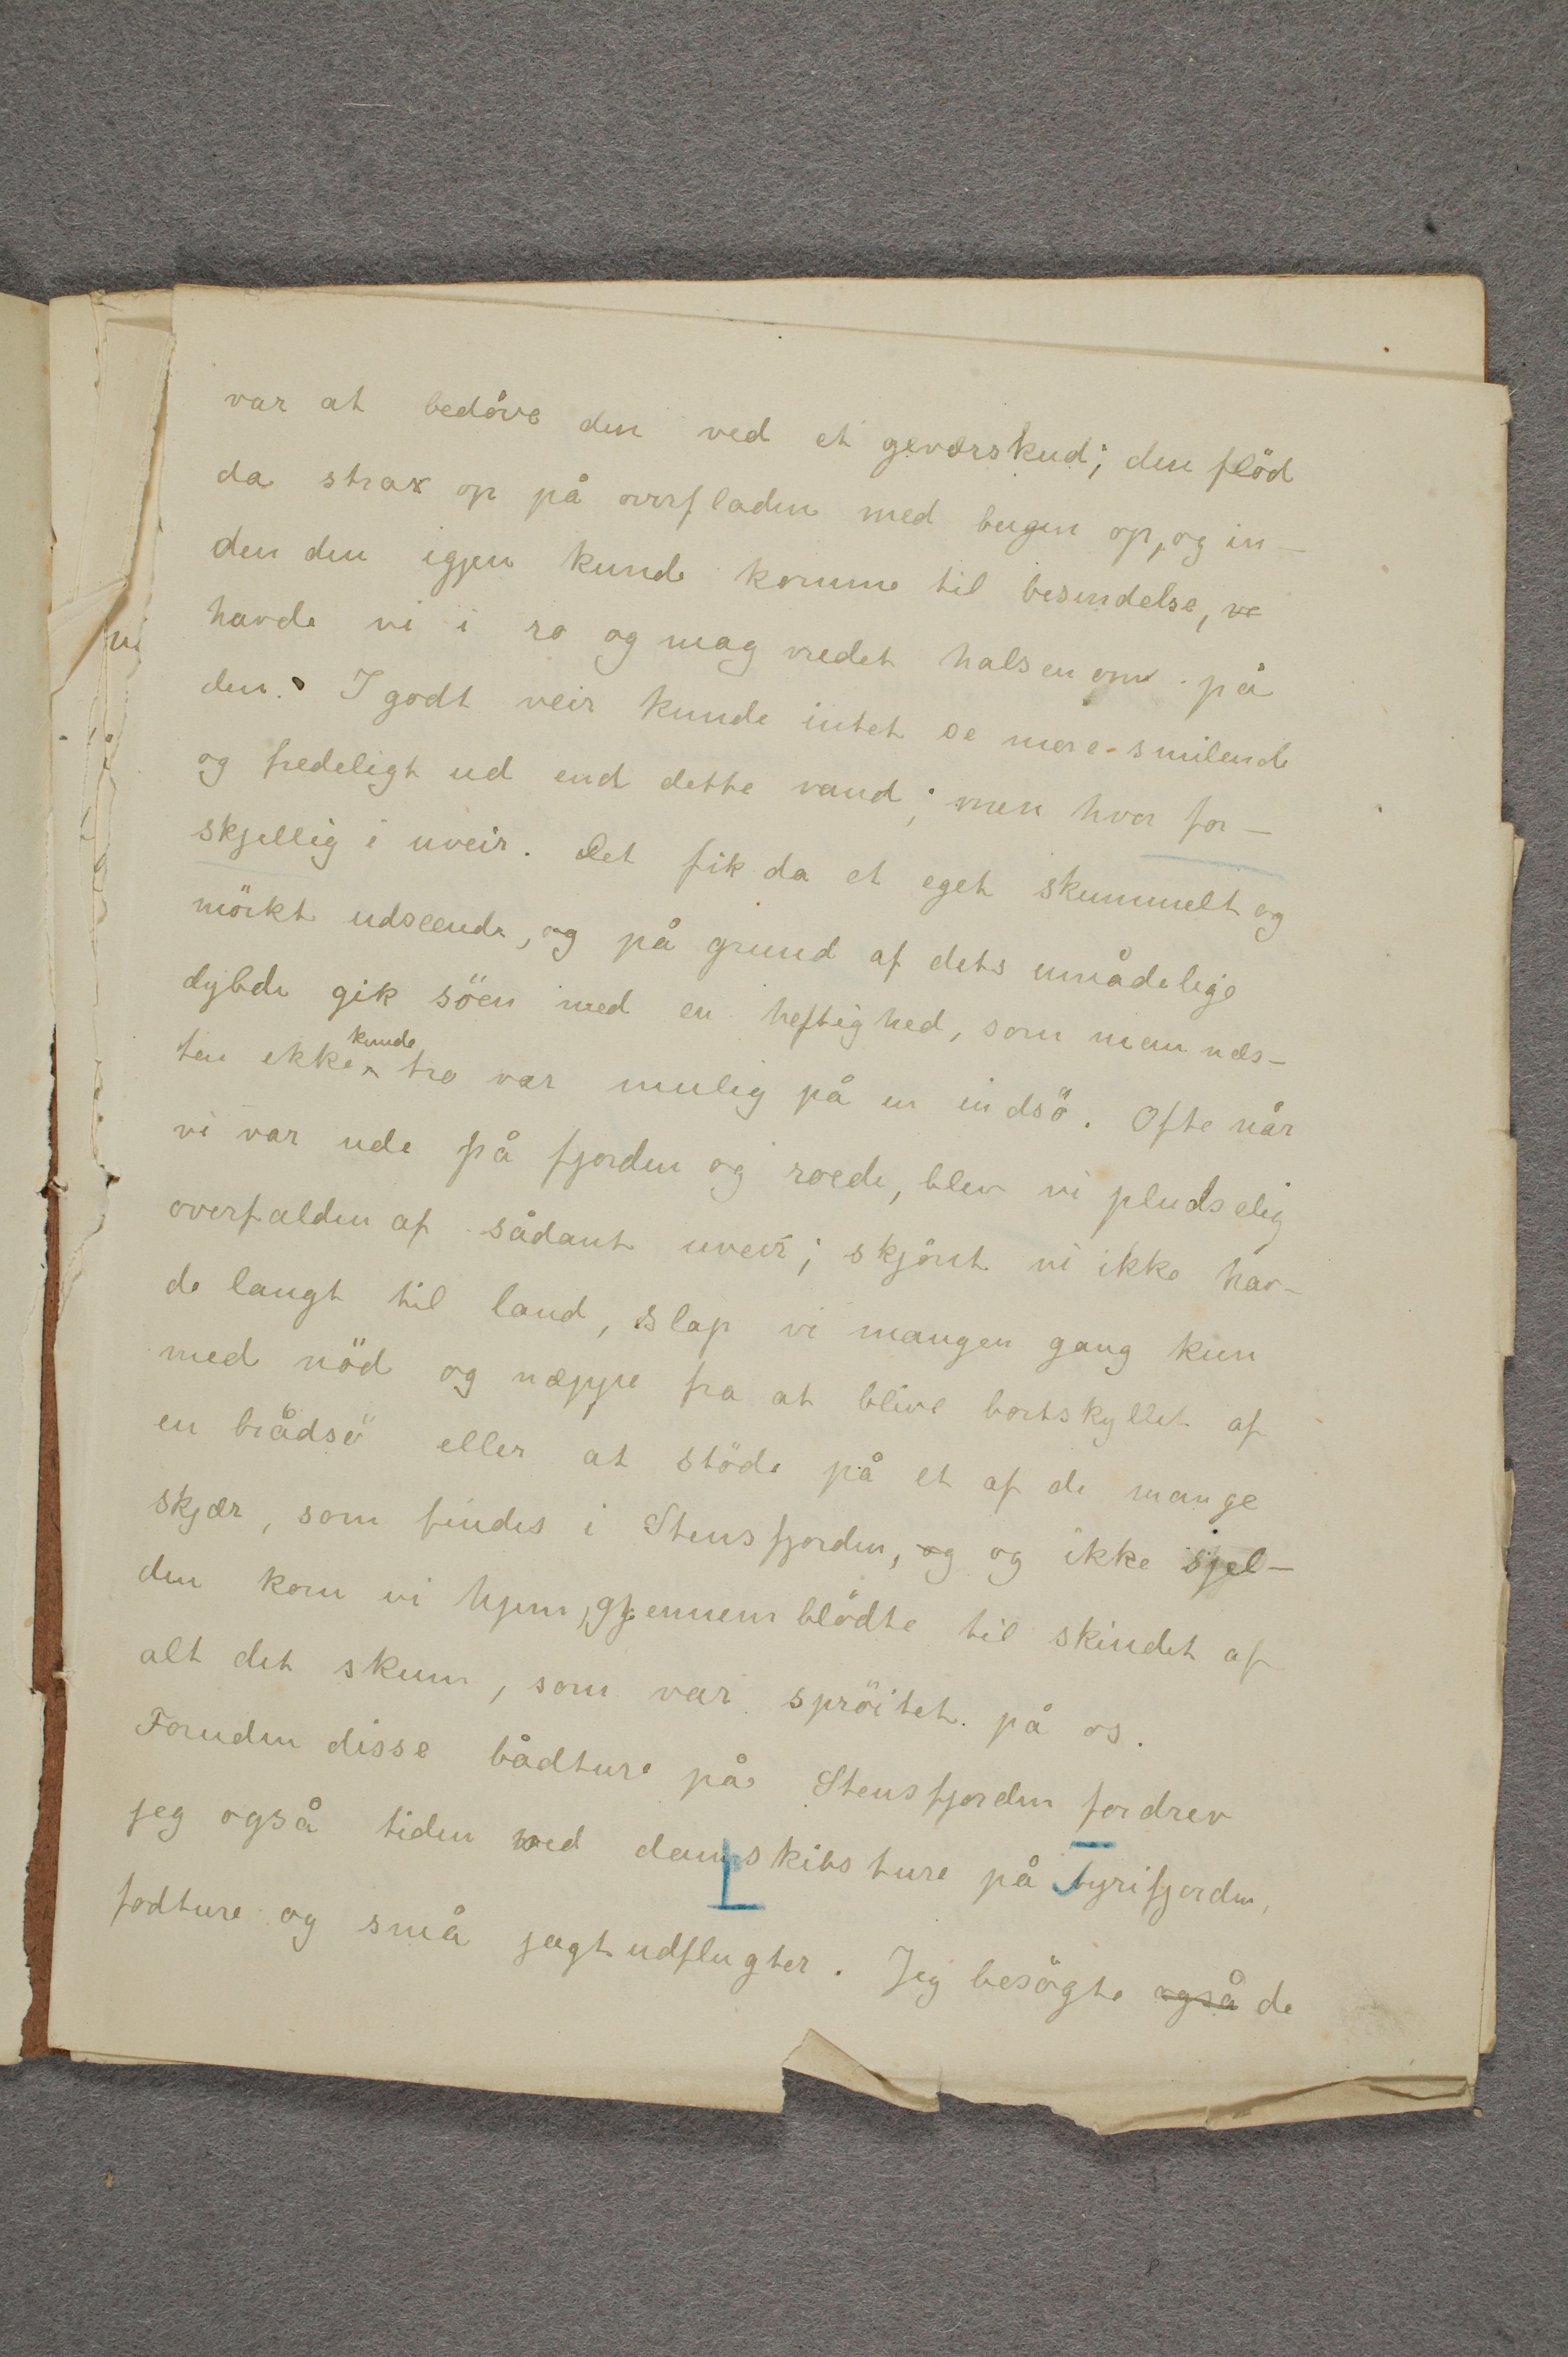 var at bedøve den ved et geværskud; den flöd
da strax op på overfladen med bugen op, og in-
den den igjen kunde komme til besindelse, ve
havde vi i ro og mag vredet halsen om på
den. I godt veir kunde intet se mere smilende
og fredeligt ud end dette vand; men hvor for-
skjellig i uveir. Det fik da et eget skummelt og
mörkt udseende, og på grund af dets umådelige
dybde gik söen med en heftighed, som man næs-
ten ikke kunde tro var mulig på en indsö. Ofte når
vi var ude på fjorden og roede, blev vi pludselig
overfalden af sådant uveir; skjönt vi ikke hav-
de langt til land, slap vi mangen gang kun
med nöd og næppe fra at blive bortskyllet af
en brådsö eller at stöde på et af de mange
skjær, som findes i Stensfjorden, og og ikke sjel-
den kom vi hjem, gjennemblödte til skindet af
alt det skum, som var spröitet på os.
Foruden disse bådture på Stensfjorden fordrev
jeg også tiden med dampskibsture på Tyrifjorden,
fodture og små jagtudflugter. Jeg besögte også de